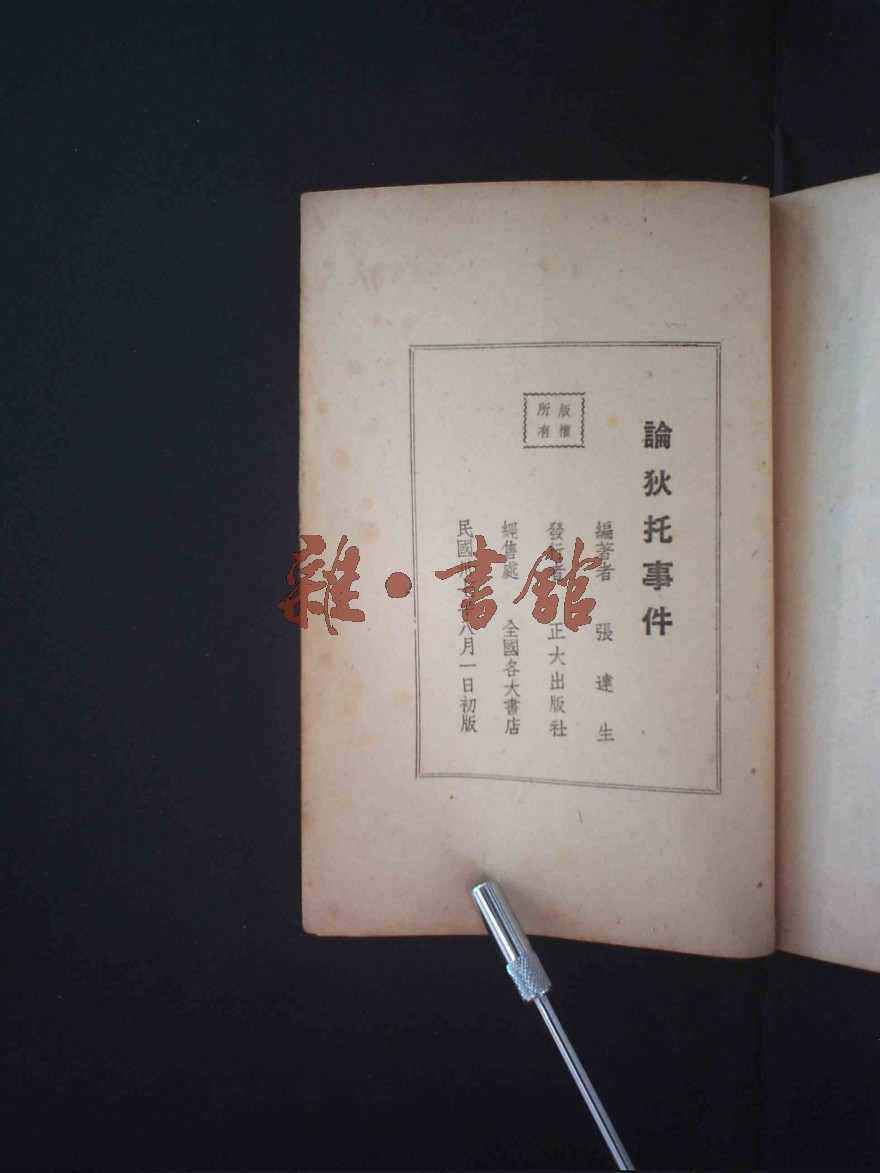 論狄托事件
版權
所有
編著者 張達生
發行者 正大出版社
經售處 全國各大書店
民國 八月一日初版
雜·書館